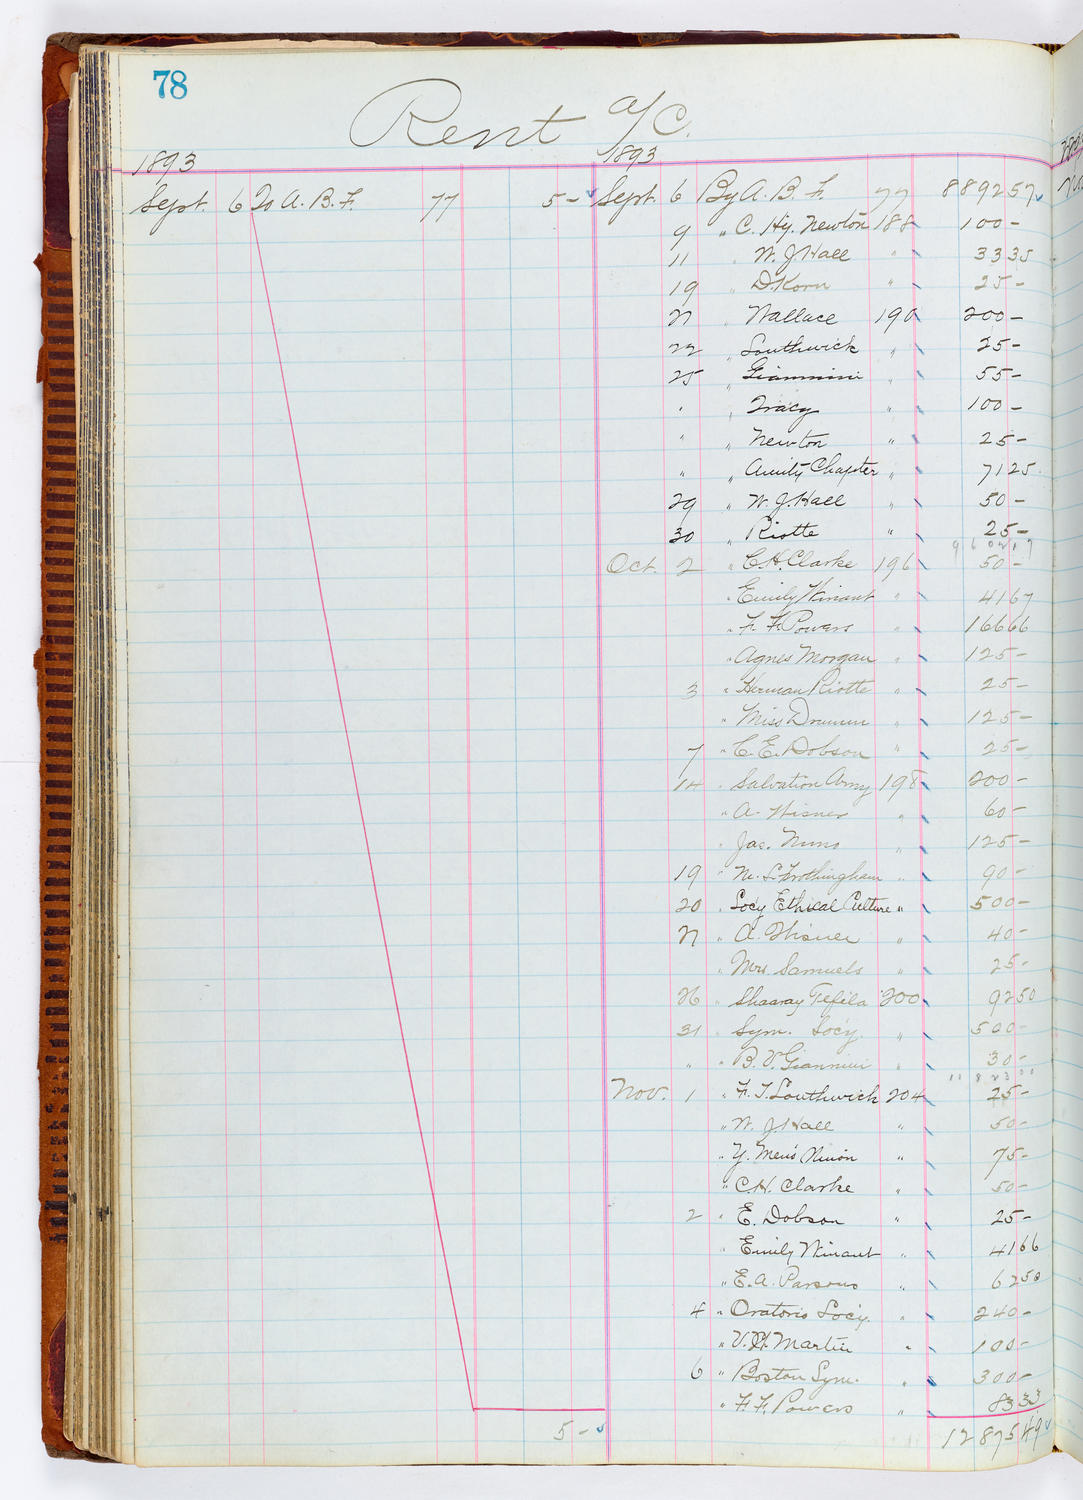 78
Rent a/c.
1893
1893
Sept. 6 To A. B. F. 77 5 -
Sept. 6 By A. B. F. 77 8892 57
9 " C. Hy. Newton 188 100 -
11 " W. J. Hall " 33 35
19 " D. Korn " 25 -
21 " Wallace 190 200 -
22 " Southwick " 25 -
25 " Giannini " 55 -
" " Tracy " 100 -
" " Newton " 25 -
" " Amity Chapter " 71 25
29 " W. J. Hall " 50 -
30 " Riotte " 25 -
Oct. 2 " C. H. Clarke 196 50 -
" Emily Winant " 41 67
" F. F. Powers " 166 66
" Agnes Morgan " 125 -
3 " Herman Riotte " 25 -
" Miss Drumm " 125 -
7 " C. E. Dobson " 25 -
14 " Salvation Army 198 200 -
" A. Wisner " 60 -
" Jas. Nuno " 125 -
19 " Frothingham " 90 -
20 " Socy Ethical Culture " 500 -
21 " A. Wisner " 40 -
" Mrs Samuels " 25 -
26 " Shaaray Tefila 200 92 50
31 " Sym. Socy. " 500 -
" " B. V. Giannini " 30 -
Nov. 1 " F. T. Southwick 204 25 -
" W. J. Hall " 50 -
" Y. Men's Union " 75 -
" C. H. Clarke " 50 -
2 " E. Dobson " 25 -
" Emily Winant " 41 66
" E. A. Parsons " 62 50
4 " Oratorio Socy. " 240 -
" Martin " 100 -
6 " Boston Sym. " 300 -
" F. F. Powers " 83 33
5 -
12875 49